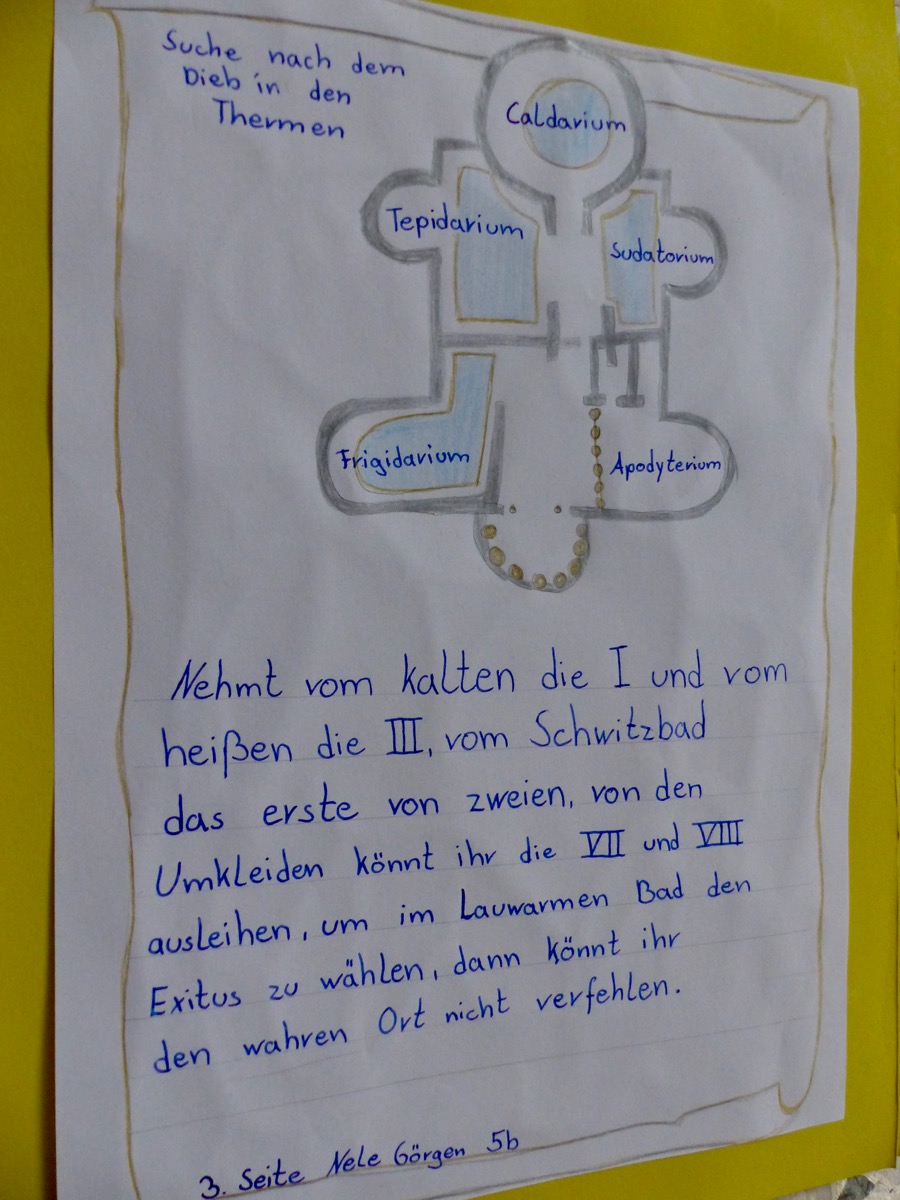 Suche nach dem
Dieb in den
Thermen
Caldarium
Tepidarium
Sudatorium
Frigidarium
Apodyterium
Nehmt vom kalten die I und vom
heißen die III, vom Schwitzbad
das erste von zweien, von den
Umkleiden könnt ihr die VII und VIII
ausleihen, um im Lauwarmen Bad den
Exitus zu wählen, dann könnt ihr
den wahren Ort nicht verfehlen.
3. Seite Nele Görgen 5b